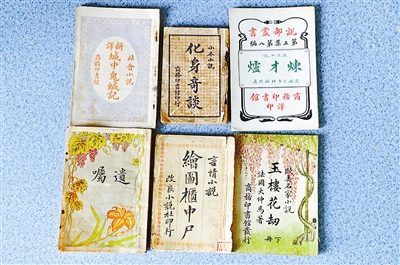 社會小說
新譯
城中鬼蜮記
商務印書館
小本小說
化身奇談
商務印書館發行
說部叢書
第八編
煉才爐
商務印書館
譯印
遺囑
言情小說
繪圖櫃中尸
改良小說社印行
歐美名家小說
玉樓花劫
下冊
法國大仲馬著
商務印書館發行